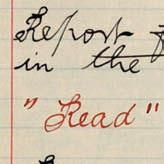 Report
in the
" Read "